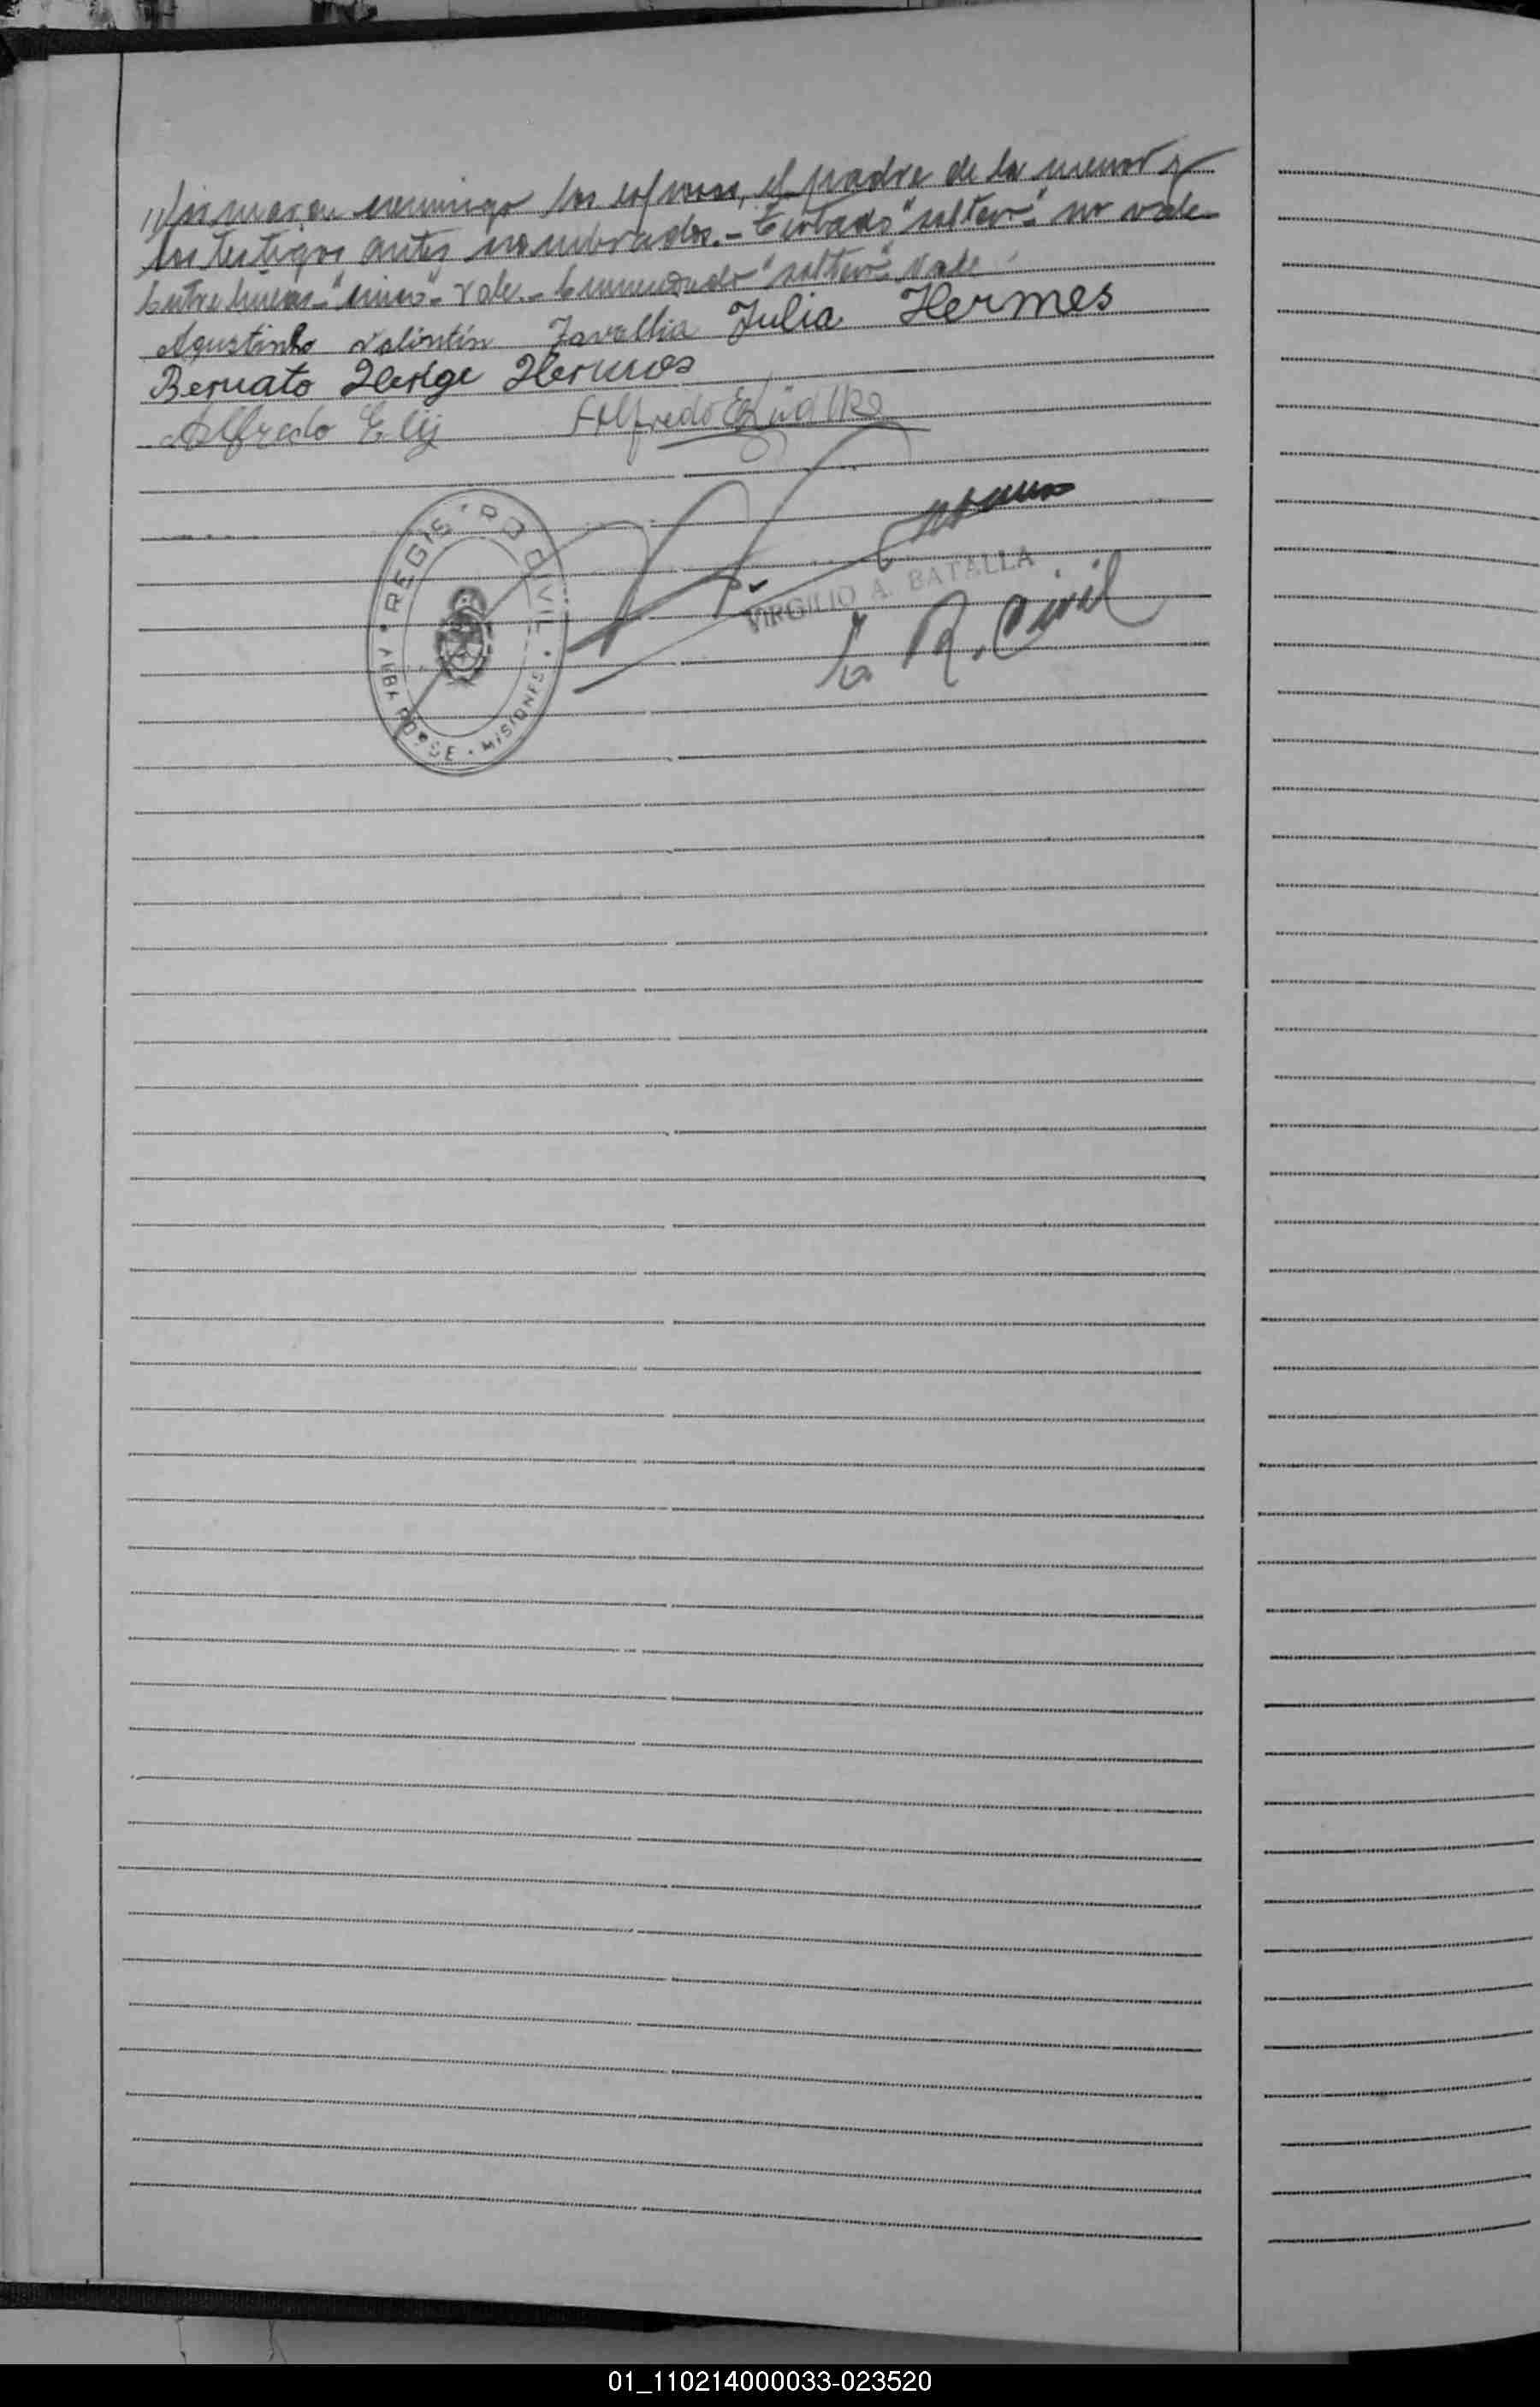 //firmaron conmigo los esposos, el padre de la menor y
los testigos antes nombrados.- Testado "soltero" no vale
Entre líneas "cinco" Vale.- Enmendado "soltero" Vale
Agustinho Valintin Zavallia Julia Hermes
Bernato Helge Hermes
Alfredo Elij Alfredo E.
REGISTRO CIVIL
ALBA POSSE · MISIONES
VIRGILIO A. BATALLA
R. Civil
01_110214000033-023520